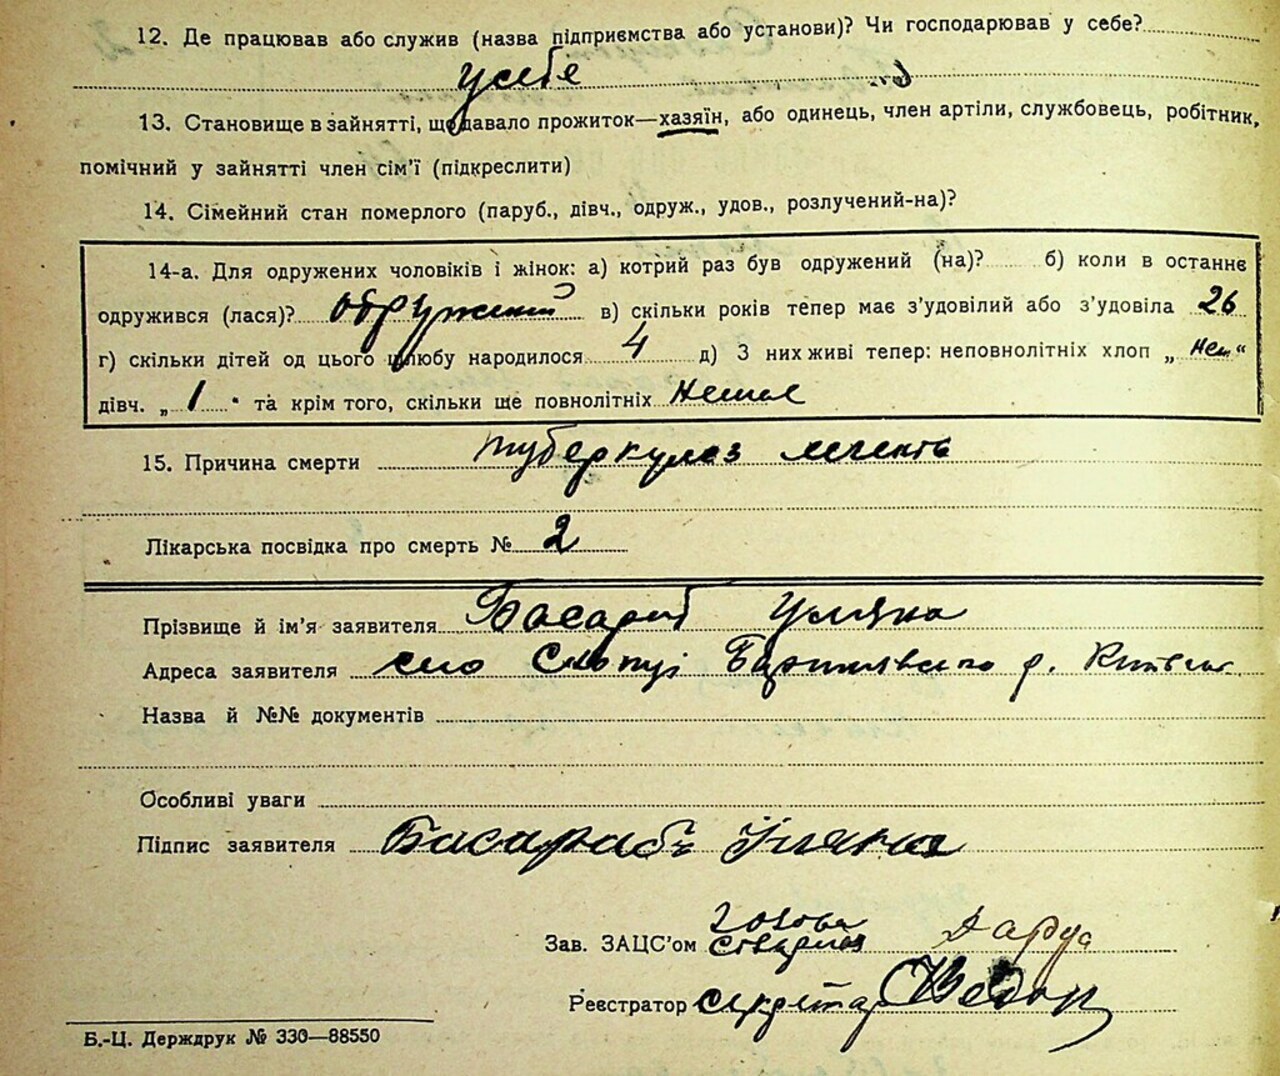 12. Де працював або служив (назва підприємства або установи)? Чи господарював у себе?
у себе
13. Становище в зайнятті, що давало прожиток—хазяїн, або одинець, член артіли, службовець, робітник,
помічний у зайнятті член сім'ї (підкреслити)
14. Сімейний стан померлого (паруб., дівч., одруж., удов., розлучений-на)?
14-а. Для одружених чоловіків і жінок: а) котрий раз був одружений (на)? б) коли в останнє
одружився (лася)? в) скільки років тепер має з'удовілий або з'удовіла 26
г) скільки дітей од цього шлюбу народилося 4 д) З них живі тепер: неповнолітніх хлоп „ нем “
дівч. „ 1 “ та крім того, скільки ще повнолітніх Немає
15. Причина смерти туберкулез легенів
Лікарська посвідка про смерть № 2
Прізвище й ім'я заявителя Басараб Уляна
Адреса заявителя село р.
Назва й №№ документів
Особливі уваги
Підпис заявителя Басарабъ Уляна
голова
Зав. ЗАЦС'ом
Реєстратор секретар
Б.-Ц. Держдрук № 330—88550